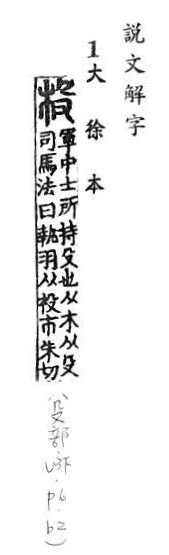 說文解字
1大徐本
杸軍中士所持殳也从木从殳
司馬法曰執羽从杸市朱切
(殳部
p6
b2)